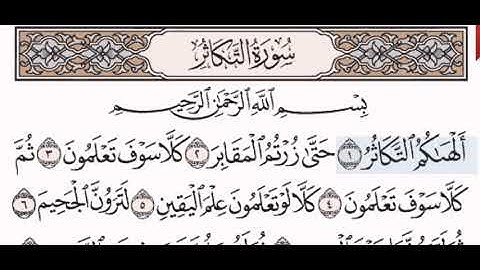 سُورَةُ التَّكَاثُرِ
بِسْمِ اللَّهِ الرَّحْمَٰنِ الرَّحِيمِ
أَلْهَىٰكُمُ ٱلتَّكَاثُرُ ١ حَتَّىٰ زُرْتُمُ ٱلْمَقَابِرَ ٢ كَلَّا سَوْفَ تَعْلَمُونَ ٣ ثُمَّ
كَلَّا سَوْفَ تَعْلَمُونَ ٤ كَلَّا لَوْ تَعْلَمُونَ عِلْمَ ٱلْيَقِينِ ٥ لَتَرَوُنَّ ٱلْجَحِيمَ ٦